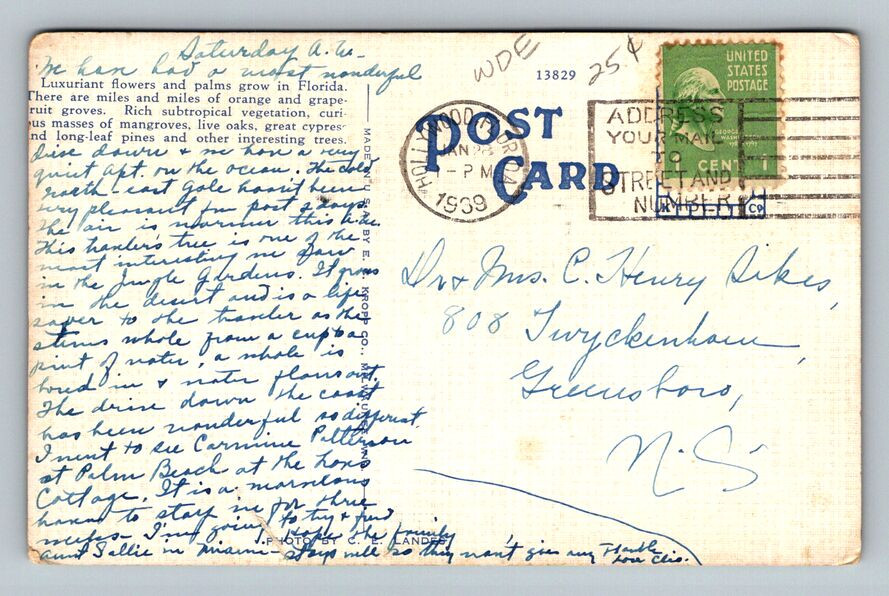 Saturday a.m.
We have had a most wonderful
Luxuriant flowers and palms grow in Florida.
There are miles and miles of orange and grape-
ruit groves. Rich subtropical vegetation, curi-
us masses of mangroves, live oaks, great cypres-
nd long-leaf pines and other interesting trees.
drive down & we have a very
quiet apt. on the ocean. The cold
north-east gale hasn't been
very pleasant for past 2 days.
The air is warmer this a.m.
This travlers tree is one of the
most interesting we saw
in the Jungle Gardens. It grows
in the desert and is a life
saver to the traveler as the
stems whole from a cup to a
pint of water, a whole is
bored in & water flows out.
The drive down the coast
has been wonderful so different
I went to see Carmine Patterson
at Palm Beach at the
Cottage. It is a marvelous
to stay in for three
weeks. I'm going to try & find
aunt Sallie in Miami- I hope the family
stays well so they won't give any trouble
Love
MADE IN U.S.A. BY E. C. KROPP CO., MILWAUKEE, WIS.
PHOTO BY C. E. LANDES
WDE
25¢
13829
POST
CARD
HOLLYWOOD FLORIDA
JAN
- PM
1939
ADDRESS
YOUR MAIL
TO
STREET AND
NUMBER
UNITED
STATES
POSTAGE
GEORGE
WASHINGTON
CENT 1
Dr & Mrs. C. Henry Sikes,
808 Twyckenham
Greensboro,
N-S